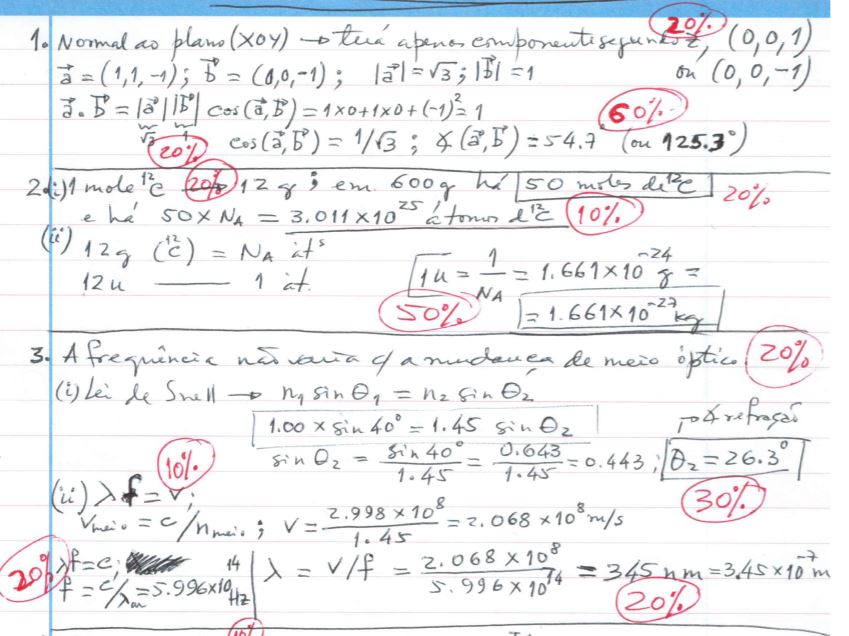 20%
1. Normal ao plano (XOY) → terá apenas componente segundo z, (0,0,1)
a⃗ = (1,1,-1); b⃗ = (0,0,-1); |a⃗| = √3; |b⃗| = 1 ou (0,0,-1)
a⃗ . b⃗ = |a⃗| |b⃗| cos(a⃗,b⃗) = 1×0+1×0+(-1)² = 1 60%
√3 1
20% cos(a⃗,b⃗) = 1/√3 ; ∡(a⃗,b⃗) = 54.7° (ou 125.3°)
2. (i) 1 mole ¹²C 20% 12 g ; em 600g há 50 moles de ¹²C 20%
e há 50 × NA = 3.011×10²⁵ átomos d ¹²C 10%
(ii) 12 g (¹²C) = NA átˢ
12u — 1 át. 1u = 1/NA = 1.661×10⁻²⁴ g =
50% = 1.661×10⁻²⁷ kg
3. A frequência não varia c/ a mudança de meio óptico 20%
(i) Lei de Snell → n₁ sin θ₁ = n₂ sin θ₂
1.00 × sin 40° = 1.45 sin θ₂ → ∡ refração
10% sin θ₂ = sin 40°/1.45 = 0.643/1.45 = 0.443 ; θ₂ = 26.3°
30%
(ii) λ f = v;
Vmeio = c/nmeio ; v = 2.998 × 10⁸/1.45 = 2.068 × 10⁸ m/s
20% λf = c; λ = v/f = 2.068 × 10⁸/5.996 × 10¹⁴ = 345 nm = 3.45×10⁻⁷ m
f = c/λ = 5.996×10¹⁴ Hz 20%
10%